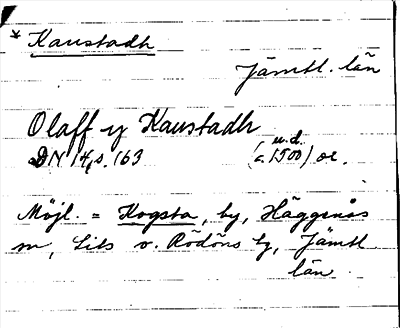 * Kaustadh
Jämtl. län
Olaff y Kaustadh
DN 14, s. 163 (u.d. c. 1500) or.
Möjl. = Kogsta, by, Häggenås
sn, Lits o. Rödöns tg, Jämtl
län